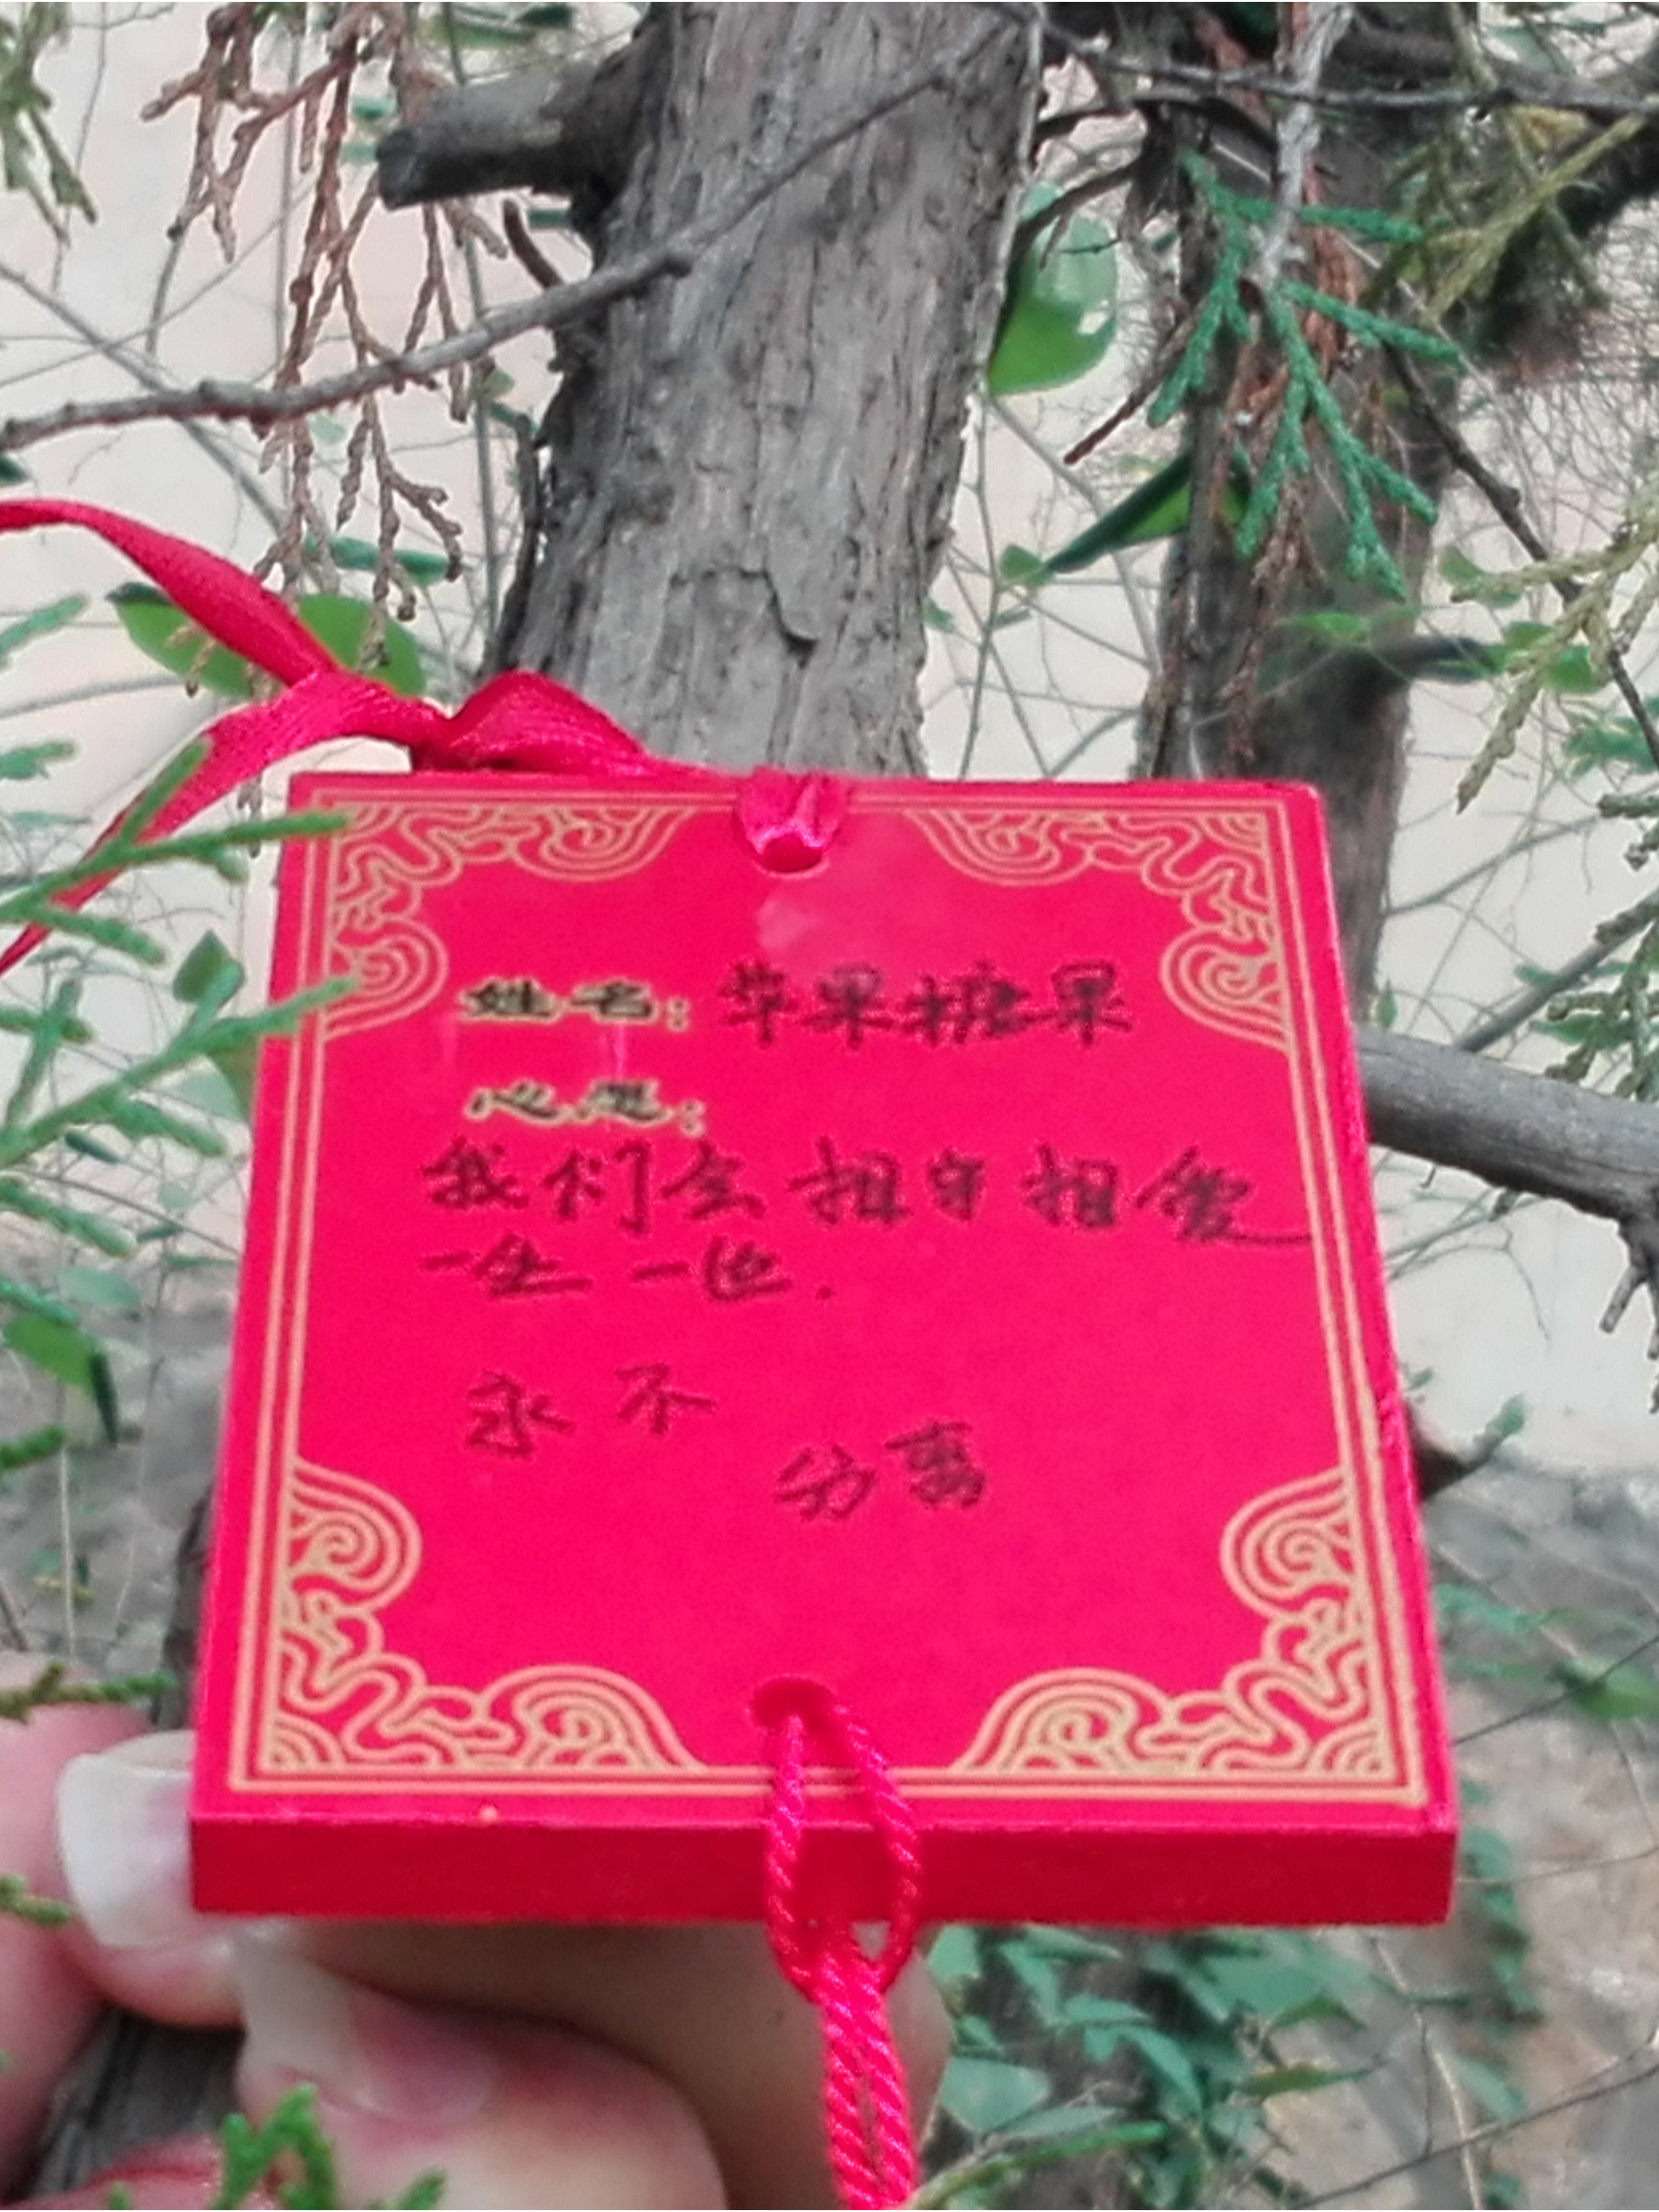 姓名：苹果糖果
心愿：
我们会相守相爱
一生一世.
永不
分离